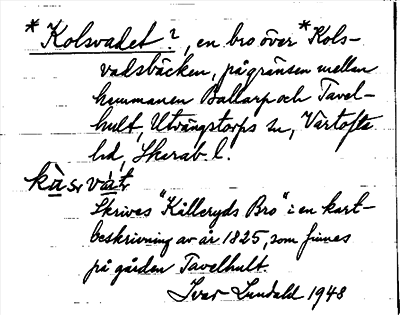 *Kolsvadet?, en bro över *Kols-
vadsbäcken, på gränsen mellan
hemmanen Ballarp och Tavel-
hult, Utvängstorps sn, Vartofta
hd, Skarab. l.
Skrives "Kålleryds Bro" i en kart-
beskrivning av år 1825, som finnes
på gården Tavelhult.
Ivar Lundahl 1948